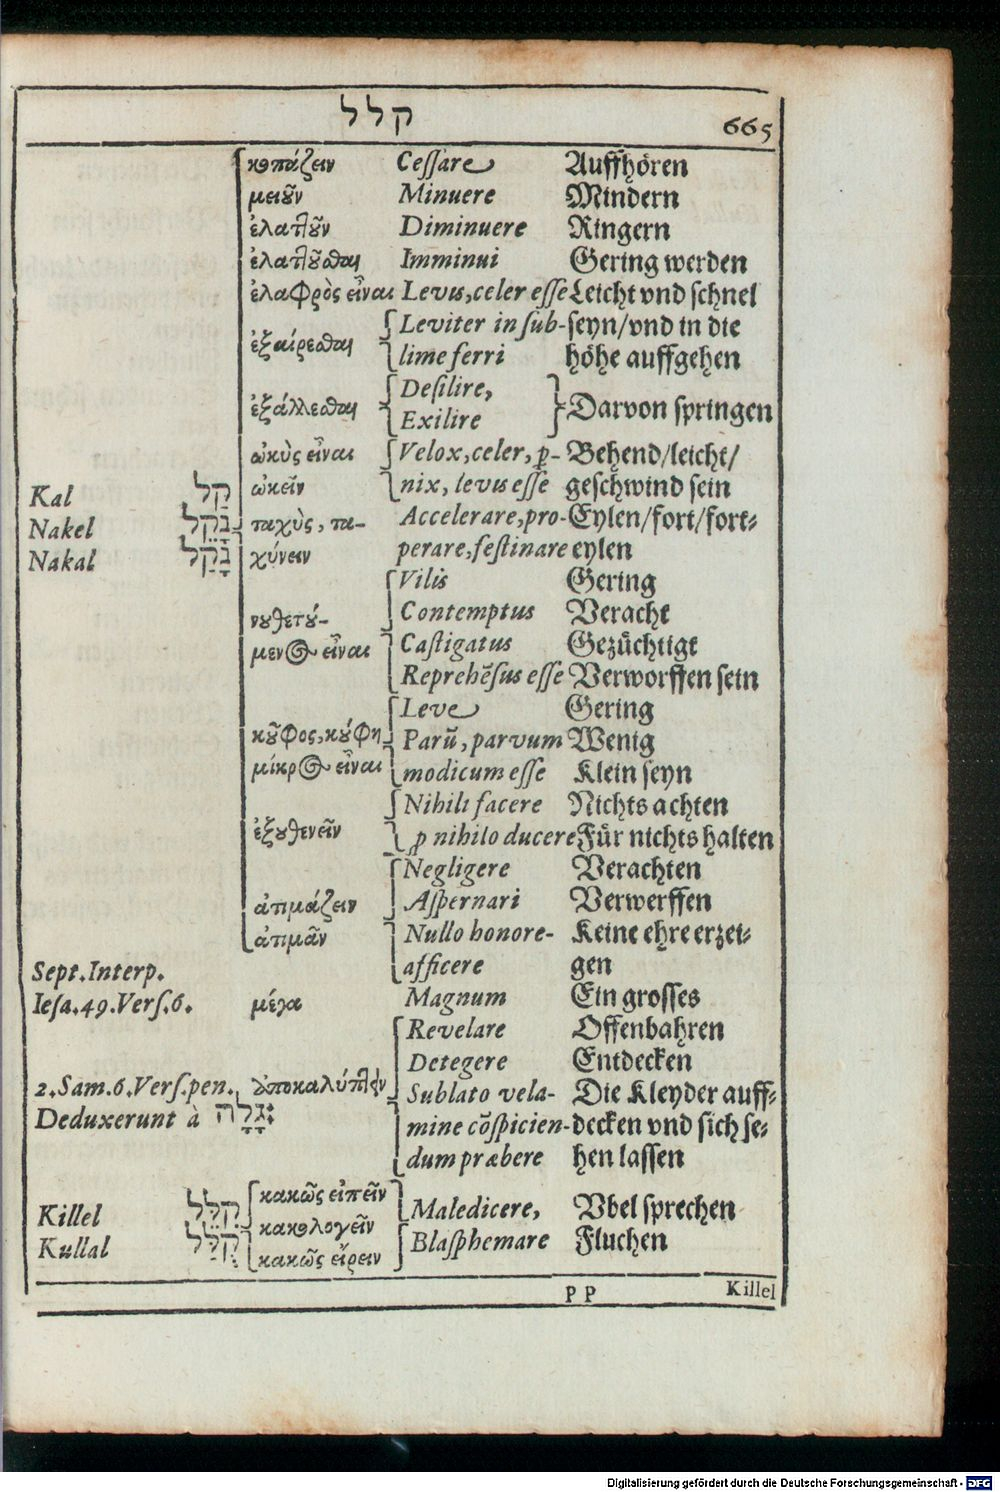 קלל 665
κοπάζειν Cessare Auffhören
μειοῦν Minuere Mindern
ἐλαττοῦν Diminuere Ringern
ἐλαττοῦσθαι Imminui Gering werden
ἐλαφρὸς εἶναι Levis, celer esse Leicht vnd schnel
Leviter in sub- seyn/vnd in die
ἐξαίρεσθαι lime ferri höhe auffgehen
Desilire,
ἐξάλλεσθαι Darvon springen
Exilire
ὠκὺς εἶναι Velox, celer, ꝑ- Behend/leicht/
Kal קַל ὠκεῖν nix, levis esse geschwind sein
Nakel נָקֵל ταχὺς, τα- Accelerare, pro- Eylen/fort/fort-
Nakal נָקַל χύνειν perare, festinare eylen
Vilis Gering
νουθετού- Contemptus Veracht
μενος εἶναι Castigatus Gezüchtigt
Reprehēsus esse Verworffen sein
Leve Gering
κοῦφος, κούφη Parū, parvum Wenig
μίκρος εἶναι modicum esse Klein seyn
Nihili facere Nichts achten
ἐξουθενεῖν ꝓ nihilo ducere Für nichts halten
Negligere Verachten
ἀτιμάζειν Aspernari Verwerffen
ἀτιμᾶν Nullo honore- Keine ehre erzei-
Sept. Interp. afficere gen
Iesa. 49. Vers. 6. μέγα Magnum Ein grosses
Revelare Offenbahren
Detegere Entdecken
2. Sam. 6. Vers. pen. ἀποκαλύπτειν Sublato vela- Die Kleyder auff-
Deduxerunt à גָלָה: mine cōspicien- decken vnd sich se-
dum præbere hen lassen
κακῶς εἰπεῖν
Killel קִלֵּל Maledicere, Vbel sprechen
κακολογεῖν
Kullal קֻלַּל κακῶς εἴρειν Blasphemare Fluchen
PP Killel
Digitalisierung gefördert durch die Deutsche Forschungsgemeinschaft - DFG